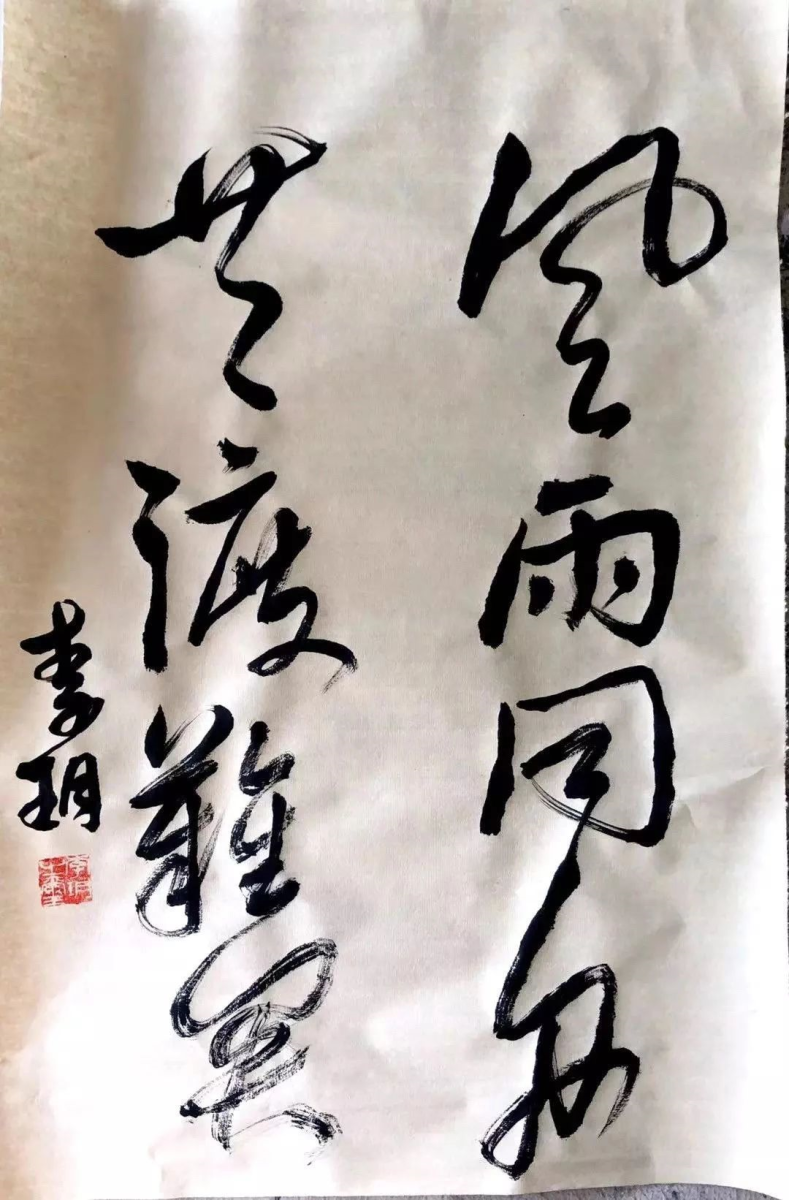 風雨同舟
共渡難關
李玥